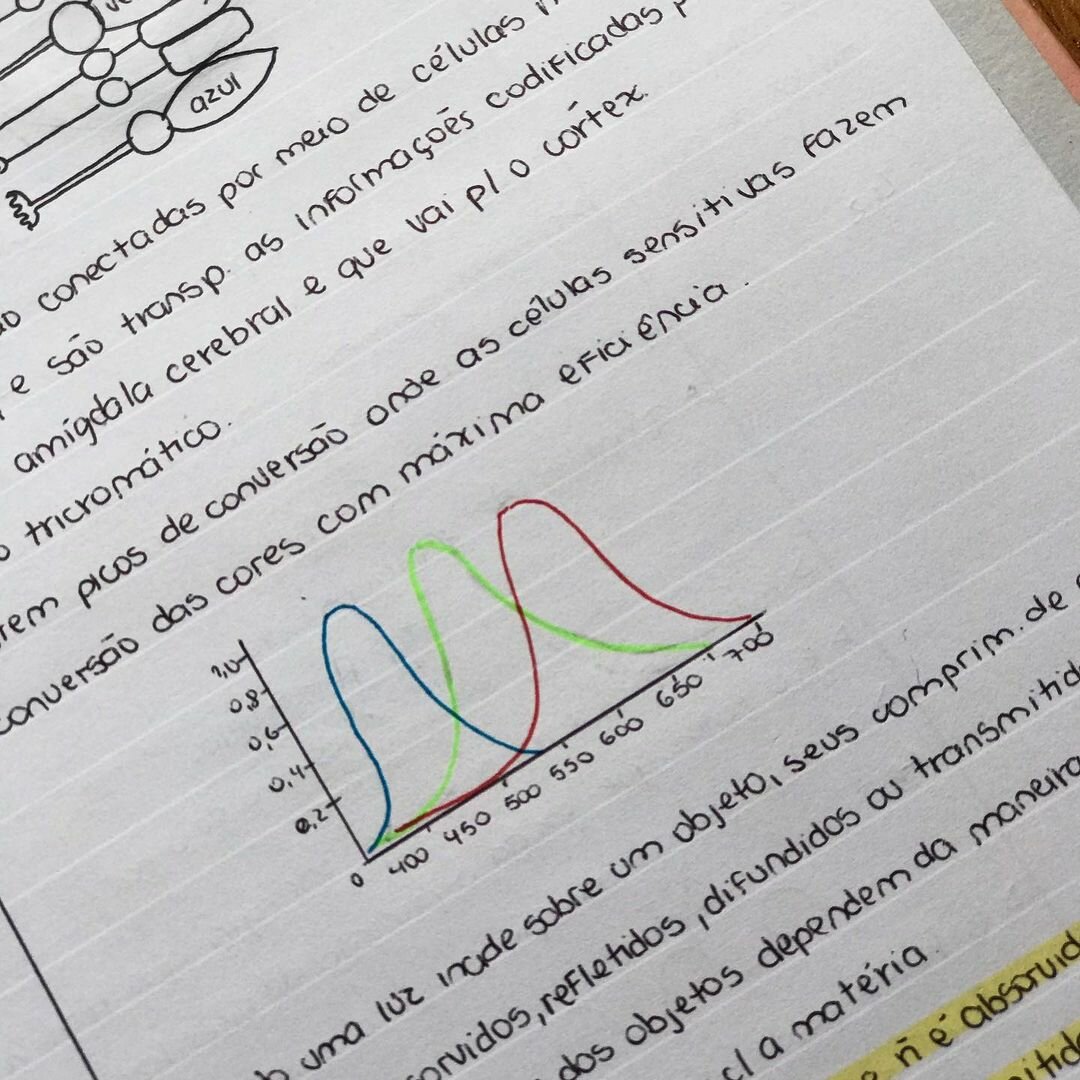 azul
conectadas por meio de células
e são transp. as informações codificadas
amígdala cerebral e que vai p/ o córtex.
tricromático.
picos de conversão onde as células sensitivas fazem
conversão das cores com máxima eficiência.
1,0
0,8
0,6
0,4
0,2
0 400 450 500 550 600 650 700
uma luz incide sobre um objeto, seus comprim. de
refletidos, difundidos ou transmitid
dos objetos dependem da maneira
c/ a matéria.
ñ é absorvid